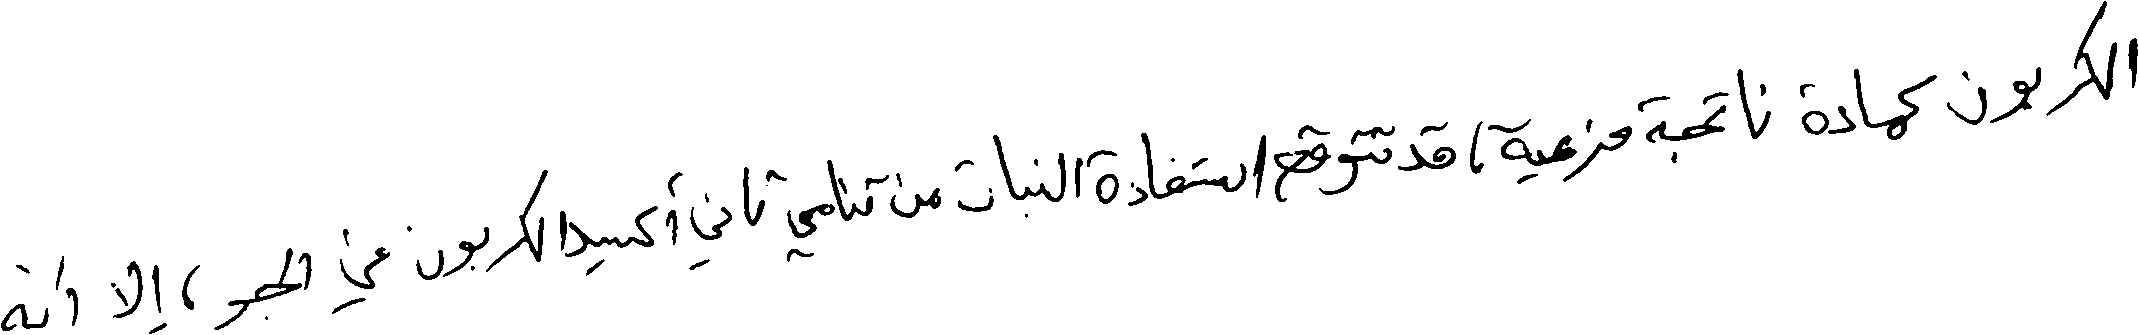 الكربون كمادة ناتجة فرعية، قد تتوقع استفادة النبات من تنامي ثاني أكسيد الكربون في الجو، إلا أنه